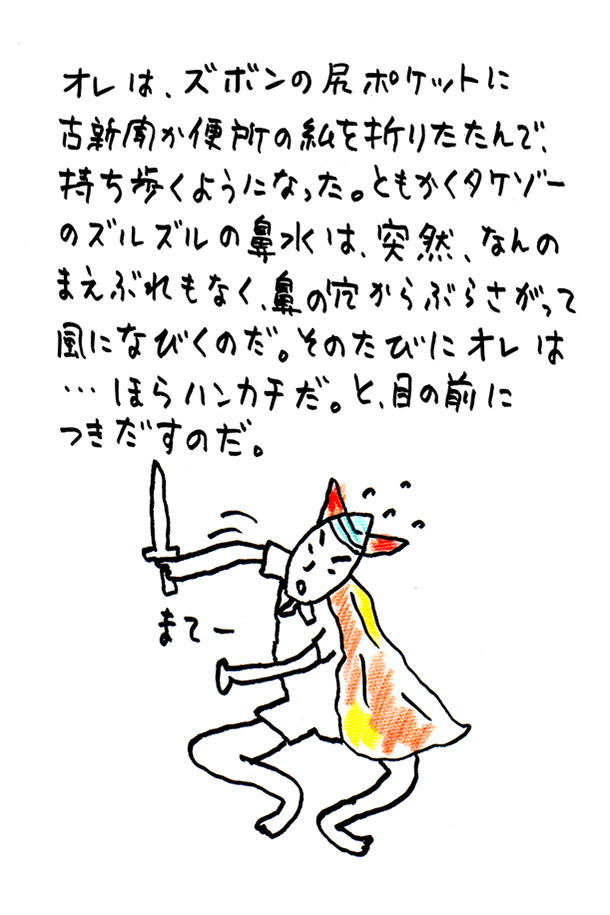 オレは、ズボンの尻ポケットに
古新聞か便所の紙を折りたたんで、
持ち歩くようになった。ともかくタケゾー
のズルズルの鼻水は、突然、なんの
まえぶれもなく、鼻の穴からぶらさがって
風になびくのだ。そのたびにオレは
…ほらハンカチだ。と、目の前に
つきだすのだ。
まてー